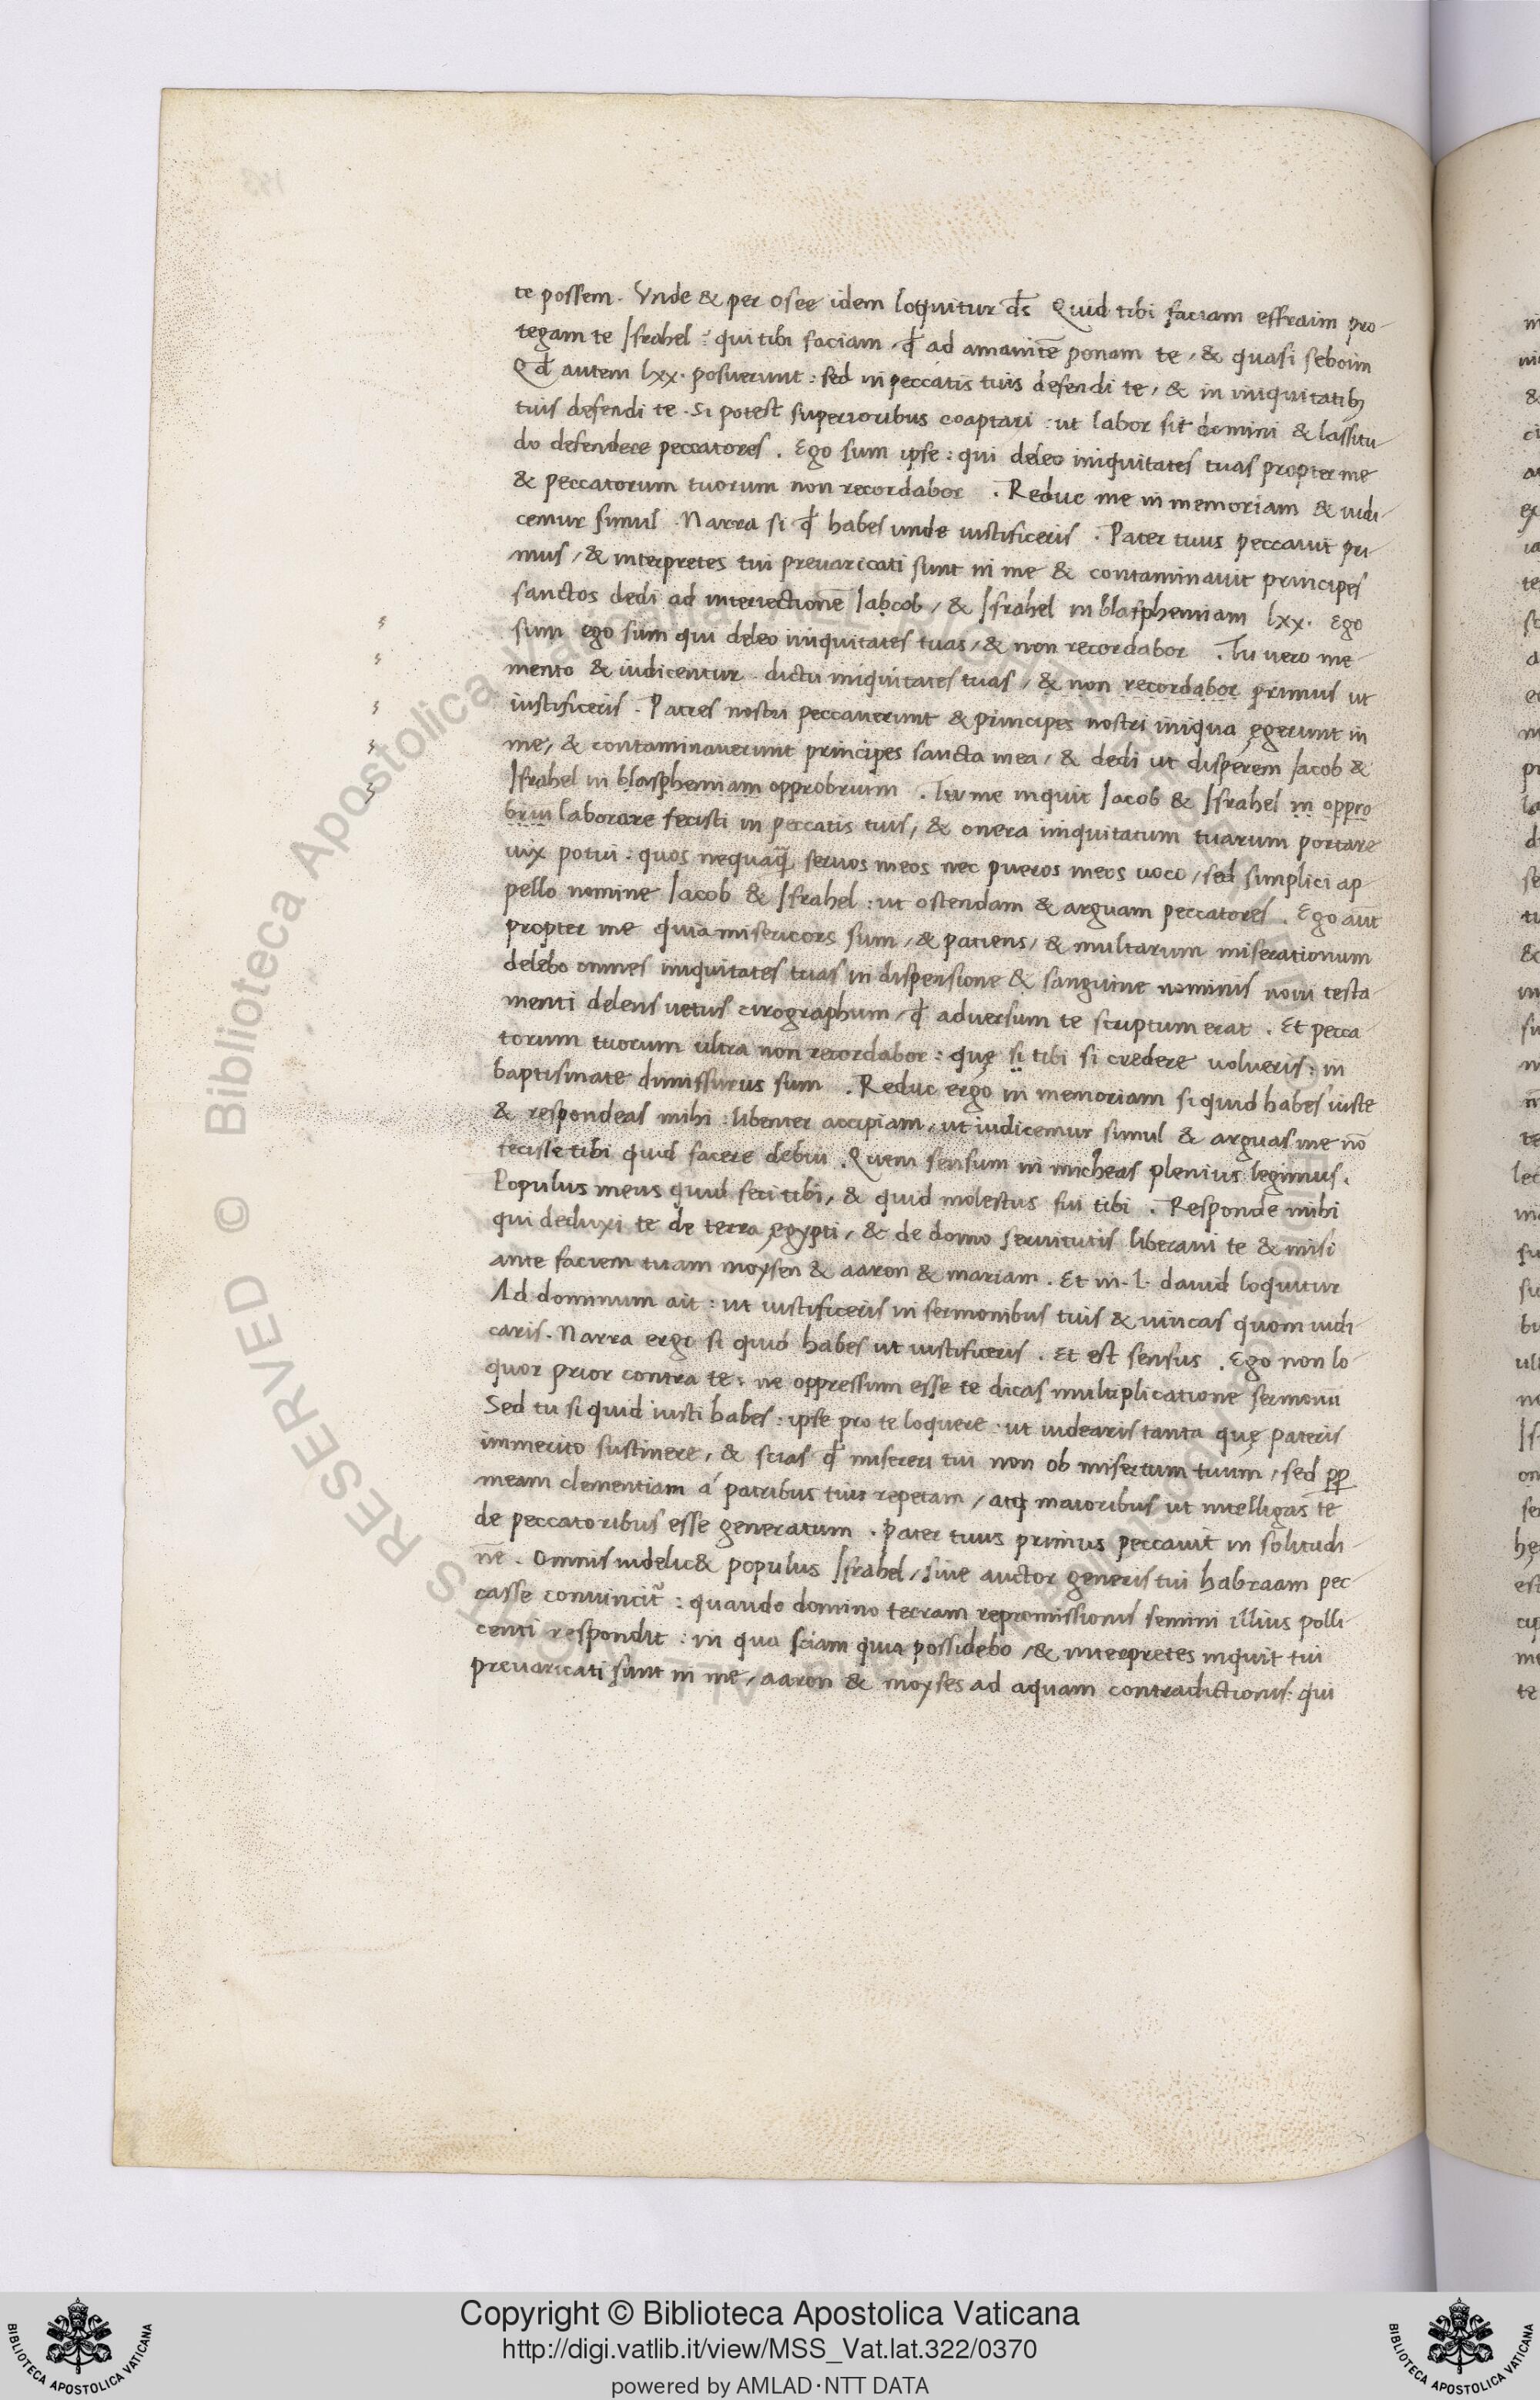 te possem. Vnde & per osee idem loquitur d̄s Quid tibi faciam effraim pro-
tegam te Israhel : qui tibi faciam, qd̄ ad amanitē ponam te, & quasi seboim
Qd̄ autem lxx. posuerunt : sed in peccatis tuis defendi te, & in iniquitatibꝫ
tuis defendi te. Si potest superioribus coaptari : ut labor sit domini & lassitu-
do defendere peccatores . Ego sum ipse : qui deleo iniquitates tuas propter me
& peccatorum tuorum non recordabor . Reduc me in memoriam & iudi-
cemur simul . Narra si qd̄ habes unde iustificeris . Pater tuus peccauit pri-
mus, & interpretes tui preuaricati sunt in me & contaminauit principes
sanctos dedi ad interiectionē Iabcob, & Israhel in blasphemiam lxx. Ego
sum ego sum qui deleo iniquitates tuas, & non recordabor . Tu uero me-
mento & iudicentur dictu iniquitates tuas, & non recordabor primus ut
iustificeris . Patres nostri peccauerunt & principes nostri iniqua ęgerunt in
me, & contaminauerunt principes sancta mea, & dedi ut disperem Jacob &
Israhel in blasphemiam opprobrium . Tu me inquit Iacob & Israhel in oppro
briu laborare fecisti in peccatis tuis, & onera iniquitatum tuarum portare
uix potui : quos nequaꝗ̄ seruos meos nec pueros meos uoco, sed simplici ap-
pello nomine Iacob & Israhel : ut ostendam & arguam peccatores . Ego aūt
propter me quia misericors sum, & patiens, & multarum miserationum
delebo omnes iniquitates tuas in dispensione & sanguine nominis noui testa-
menti delens uetus cirographum, qd̄ aduersum te scriptum erat . Et pecca-
torum tuorum ultra non recordabor : quę si tibi si credere uolueris : in
baptismate dimissurus sum . Reduc ergo in memoriam si quid habes iuste
& respondeas mihi : libenter accipiam, ut iudicemur simul & arguas me nō
fecisse tibi quid facere debui . Quem sensum in micheas plenius legimus.
Populus meus quid feci tibi, & quid molestus fui tibi . Responde mihi
qui deduxi te de terra ęgypti, & de domo seruitutis liberaui te & misi
ante faciem tuam moysen & aaron & mariam . Et in .L. dauid loquitur
Ad dominum ait : ut iustificeris in sermonibus tuis & uincas quom iudi-
caris. Narra ergo si quid habes ut iustificeris . Et est sensus . Ego non lo-
quor prior contra te : ne oppressum esse te dicas multiplicatione sermonū
Sed tu si quid iusti habes : ipse pro te loquere : ut uidearis tanta quę pateris
immerito sustinere, & scias qd̄ misereri tui non ob misertum tuum, sed ꝓꝑ
meam clementiam á patribus tuis repetam, atꝗ maioribus ut intelligas te
de peccatoribus esse generatum . Pater tuus primus peccauit in solitudi-
nē . Omnis uidelic& populus Israhel, siue auctor generis tui habraam pec-
casse conuincit̄ : quando domino terram repromissionis semini illius polli-
centi respondit : in quo sciam quia possidebo, & interpretes inquit tui
preuaricati sunt in me, aaron & moyses ad aquam contradictionis: qui
Copyright © Biblioteca Apostolica Vaticana
http://digi.vatlib.it/view/MSS_Vat.lat.322/0370
powered by AMLAD·NTT DATA